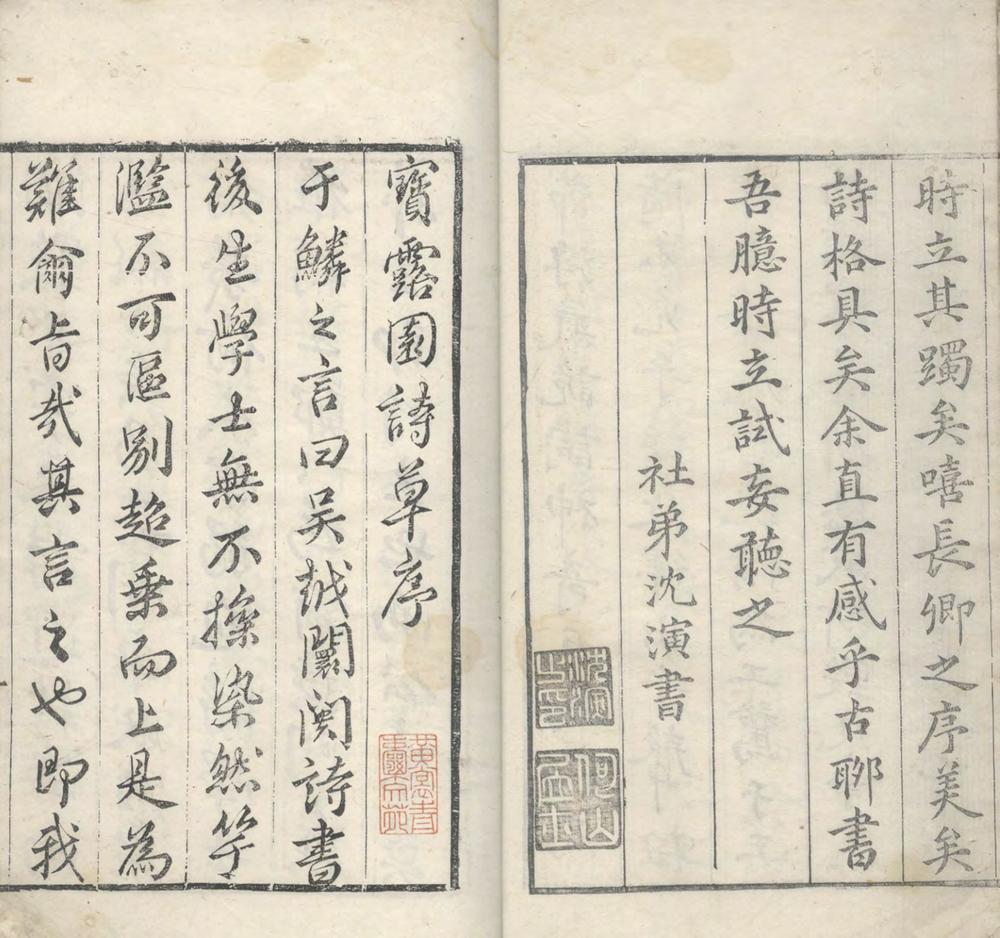 時立其躅矣嘻長卿之序美矣
詩格具矣余直有感乎古聊書
吾臆時立試妄聽之
社弟沈演書
沈演之印
寶露園詩草序
于鱗之言曰吳越闤闠詩書
後生學士無不操染然竽
濫不可區別超乘而上是為
難爾旨哉其言之也即我
黃裳青囊文苑